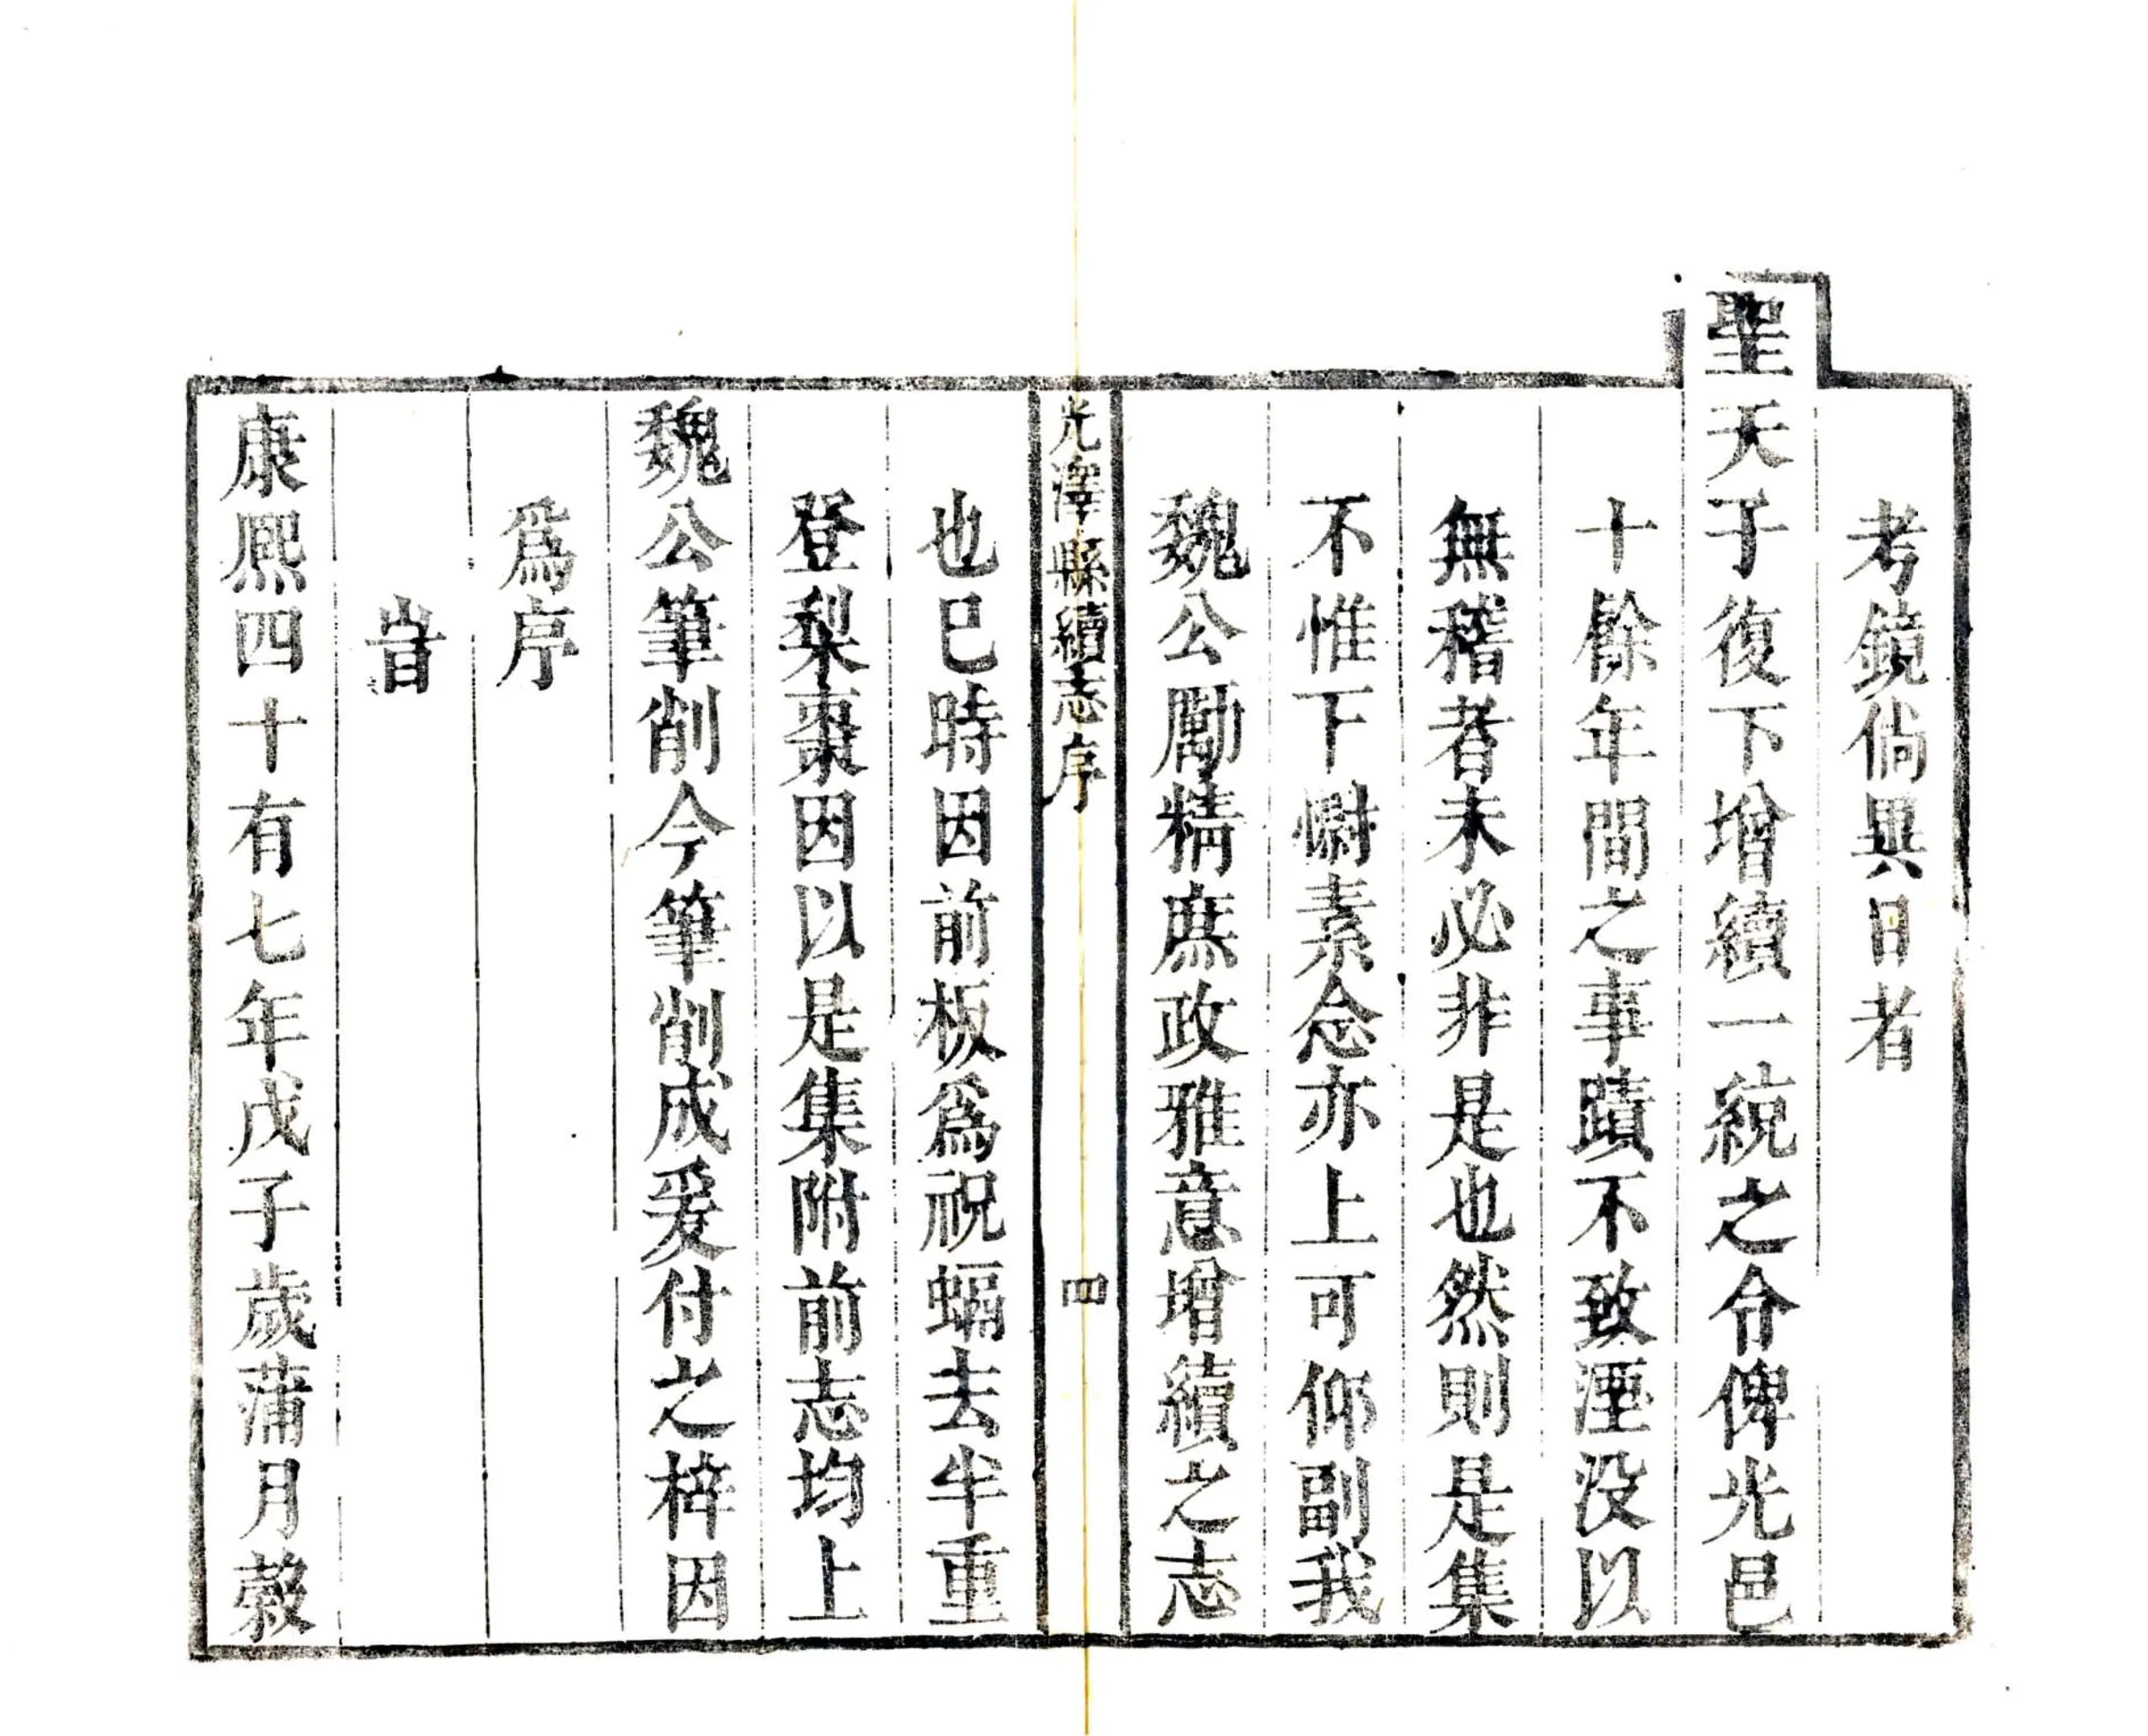 考鏡倘異日者
聖天子復下增續一統之令俾光邑
十餘年間之事蹟不致湮没以
無稽者未必非是也然則是集
不惟下慰素念亦上可仰副我
魏公勵精庶政雅意增續之志
光澤縣續志序 四
也巳時因前板爲祝蝠去半重
登梨棗因以是集附前志均上
魏公筆削今筆削成爰付之梓因
爲序
旹
康熈四十有七年戊子歲蒲月榖